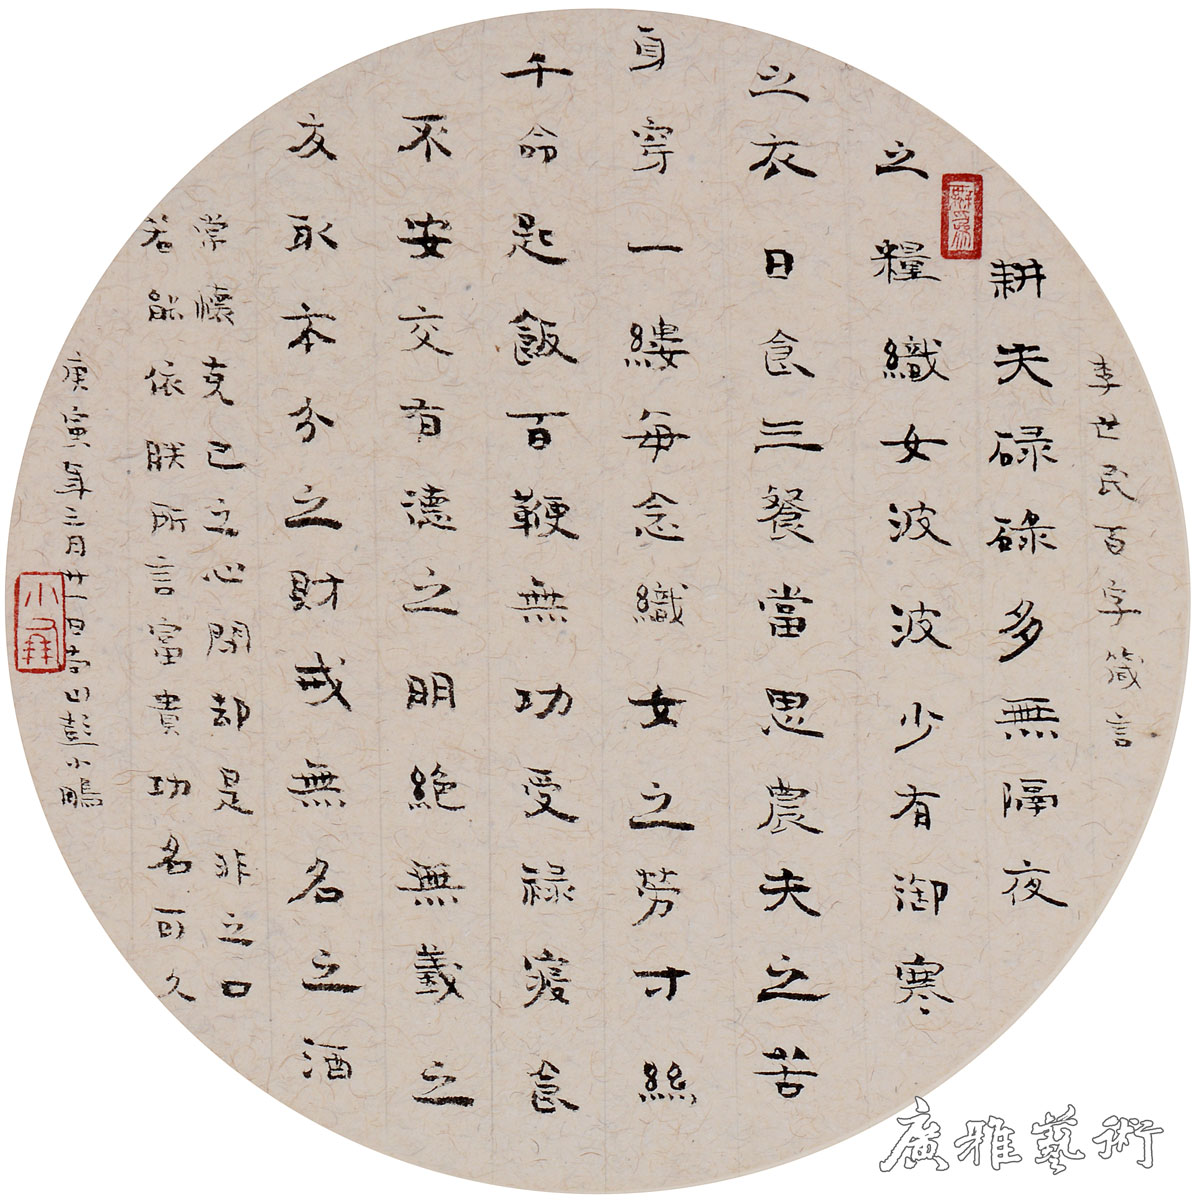 李世民百字箴言
耕夫碌碌多無隔夜
之糧織女波波少有御寒
之衣日食三餐當思農夫之苦
身穿一縷每念織女之勞寸絲
千命匙飯百鞭無功受祿寢食
不安交有德之朋絕無義之
友取本分之財戒無名之酒
常懷克己之心閉却是非之口
若能依朕所言富貴功名可久
庚寅年三月廿一日山彭小鵬
廣雅藝術